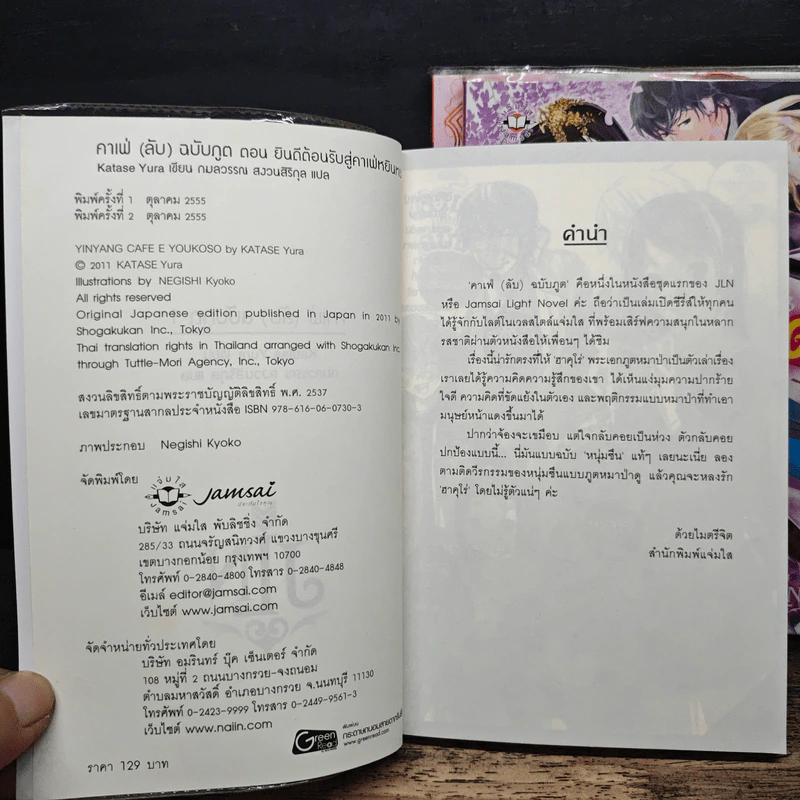 คาเฟ่ (ลับ) ฉบับภูต ตอน ยินดีต้อนรับสู่คาเฟ่หยินหยาง
Katase Yura เขียน กมลวรรณ สงวนสิริกุล แปล
พิมพ์ครั้งที่ 1 ตุลาคม 2555
พิมพ์ครั้งที่ 2 ตุลาคม 2555
YINYANG CAFE E YOUKOSO by KATASE Yura
© 2011 KATASE Yura
Illustrations by NEGISHI Kyoko
All rights reserved
Original Japanese edition published in Japan in 2011 by
Shogakukan Inc., Tokyo
Thai translation rights in Thailand arranged with Shogakukan Inc.
through Tuttle-Mori Agency, Inc., Tokyo
สงวนลิขสิทธิ์ตามพระราชบัญญัติลิขสิทธิ์ พ.ศ. 2537
เลขมาตรฐานสากลประจำหนังสือ ISBN 978-616-06-0730-3
ภาพประกอบ Negishi Kyoko
จัดพิมพ์โดย
แจ่มใส
Jamsai
Jamsai
บริษัท แจ่มใส พับลิชชิ่ง จำกัด
285/33 ถนนจรัญสนิทวงศ์ แขวงบางขุนศรี
เขตบางกอกน้อย กรุงเทพฯ 10700
โทรศัพท์ 0-2840-4800 โทรสาร 0-2840-4848
อีเมล์ editor@jamsai.com
เว็บไซต์ www.jamsai.com
จัดจำหน่ายทั่วประเทศโดย
บริษัท อมรินทร์ บุ๊ค เซ็นเตอร์ จำกัด
108 หมู่ที่ 2 ถนนบางกรวย-จงถนอม
ตำบลมหาสวัสดิ์ อำเภอบางกรวย จ.นนทบุรี 11130
โทรศัพท์ 0-2423-9999 โทรสาร 0-2449-9561-3
เว็บไซต์ www.naiin.com
Green Read
พิมพ์บน
กระดาษถนอมสายตากรีนรีด
www.greenread.com
ราคา 129 บาท
คำนำ
'คาเฟ่ (ลับ) ฉบับภูต' คือหนึ่งในหนังสือชุดแรกของ JLN
หรือ Jamsai Light Novel ค่ะ ถือว่าเป็นเล่มเปิดซีรี่ส์ให้ทุกคน
ได้รู้จักกับไลต์โนเวลสไตล์แจ่มใส ที่พร้อมเสิร์ฟความสนุกในหลาก
รสชาติผ่านตัวหนังสือให้เพื่อนๆ ได้ชิม
เรื่องนี้น่ารักตรงที่ให้ 'ฮาคุโร่' พระเอกภูตหมาป่าเป็นตัวเล่าเรื่อง
เราเลยได้รู้ความคิดความรู้สึกของเขา ได้เห็นแง่มุมความปากร้าย
ใจดี ความคิดที่ขัดแย้งในตัวเอง และพฤติกรรมแบบหมาป่าที่ทำเอา
มนุษย์หน้าแดงขึ้นมาได้
ปากว่าจ้องจะเขมือบ แต่ใจกลับคอยเป็นห่วง ตัวกลับคอย
ปกป้องแบบนี้... นี่มันแบบฉบับ 'หนุ่มซึน' แท้ๆ เลยนะเนี่ย ลอง
ตามติดวีรกรรมของหนุ่มซึนแบบภูตหมาป่าดู แล้วคุณจะหลงรัก
'ฮาคุโร่' โดยไม่รู้ตัวแน่ๆ ค่ะ
ด้วยไมตรีจิต
สำนักพิมพ์แจ่มใส